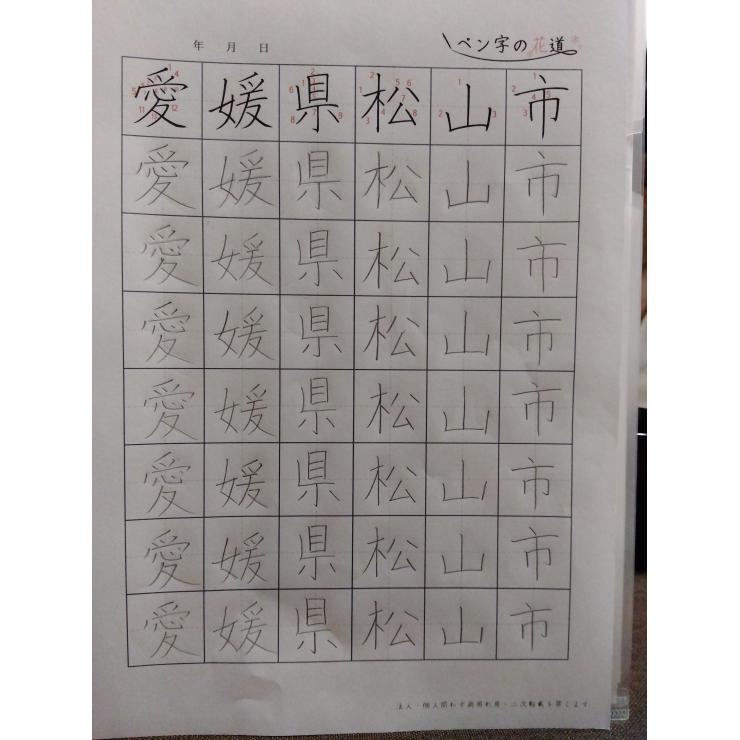 年 月 日
ペン字の花道
愛媛県松山市
愛媛県松山市
愛媛県松山市
愛媛県松山市
愛媛県松山市
愛媛県松山市
愛媛県松山市
愛媛県松山市
法人・個人問わず商用利用・二次転載を禁じます